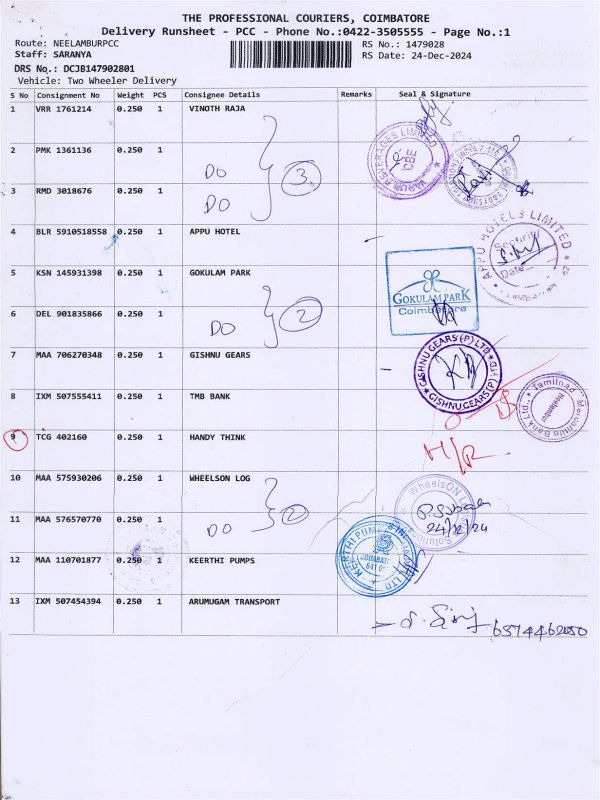 THE PROFESSIONAL COURIERS, COIMBATORE
Delivery Runsheet - PCC - Phone No.:0422-3505555 - Page No.:1
Route: NEELAMBURPCC RS No.: 1479028
Staff: SARANYA RS Date: 24-Dec-2024
DRS No.: DCJB147902801
Vehicle: Two Wheeler Delivery
S No Consignment No Weight PCS Consignee Details Remarks Seal & Signature
1 VRR 1761214 0.250 1 VINOTH RAJA
2 PMK 1361136 0.250 1 DO 3
3 RMD 3018676 0.250 1 DO
4 BLR 5910518558 0.250 1 APPU HOTEL
APPU HOTELS LIMITED
Security
Date
5 KSN 145931398 0.250 1 GOKULAM PARK
GOKULAM PARK
Coimbatore
6 DEL 901835866 0.250 1 DO 2
7 MAA 706270348 0.250 1 GISHNU GEARS
GISHNU GEARS (P) LTD
GISHNU GEARS(P)
8 IXM 507555411 0.250 1 TMB BANK
Tamilnad Mercantile Bank Ltd.,
Neelambur
9 TCG 402160 0.250 1 HANDY THINK
H/R
10 MAA 575930206 0.250 1 WHEELSON LOG
WheelsON
24/12/24
11 MAA 576570770 0.250 1 DO 2
12 MAA 110701877 0.250 1 KEERTHI PUMPS
KEERTHI PUMPS
13 IXM 507454394 0.250 1 ARUMUGAM TRANSPORT